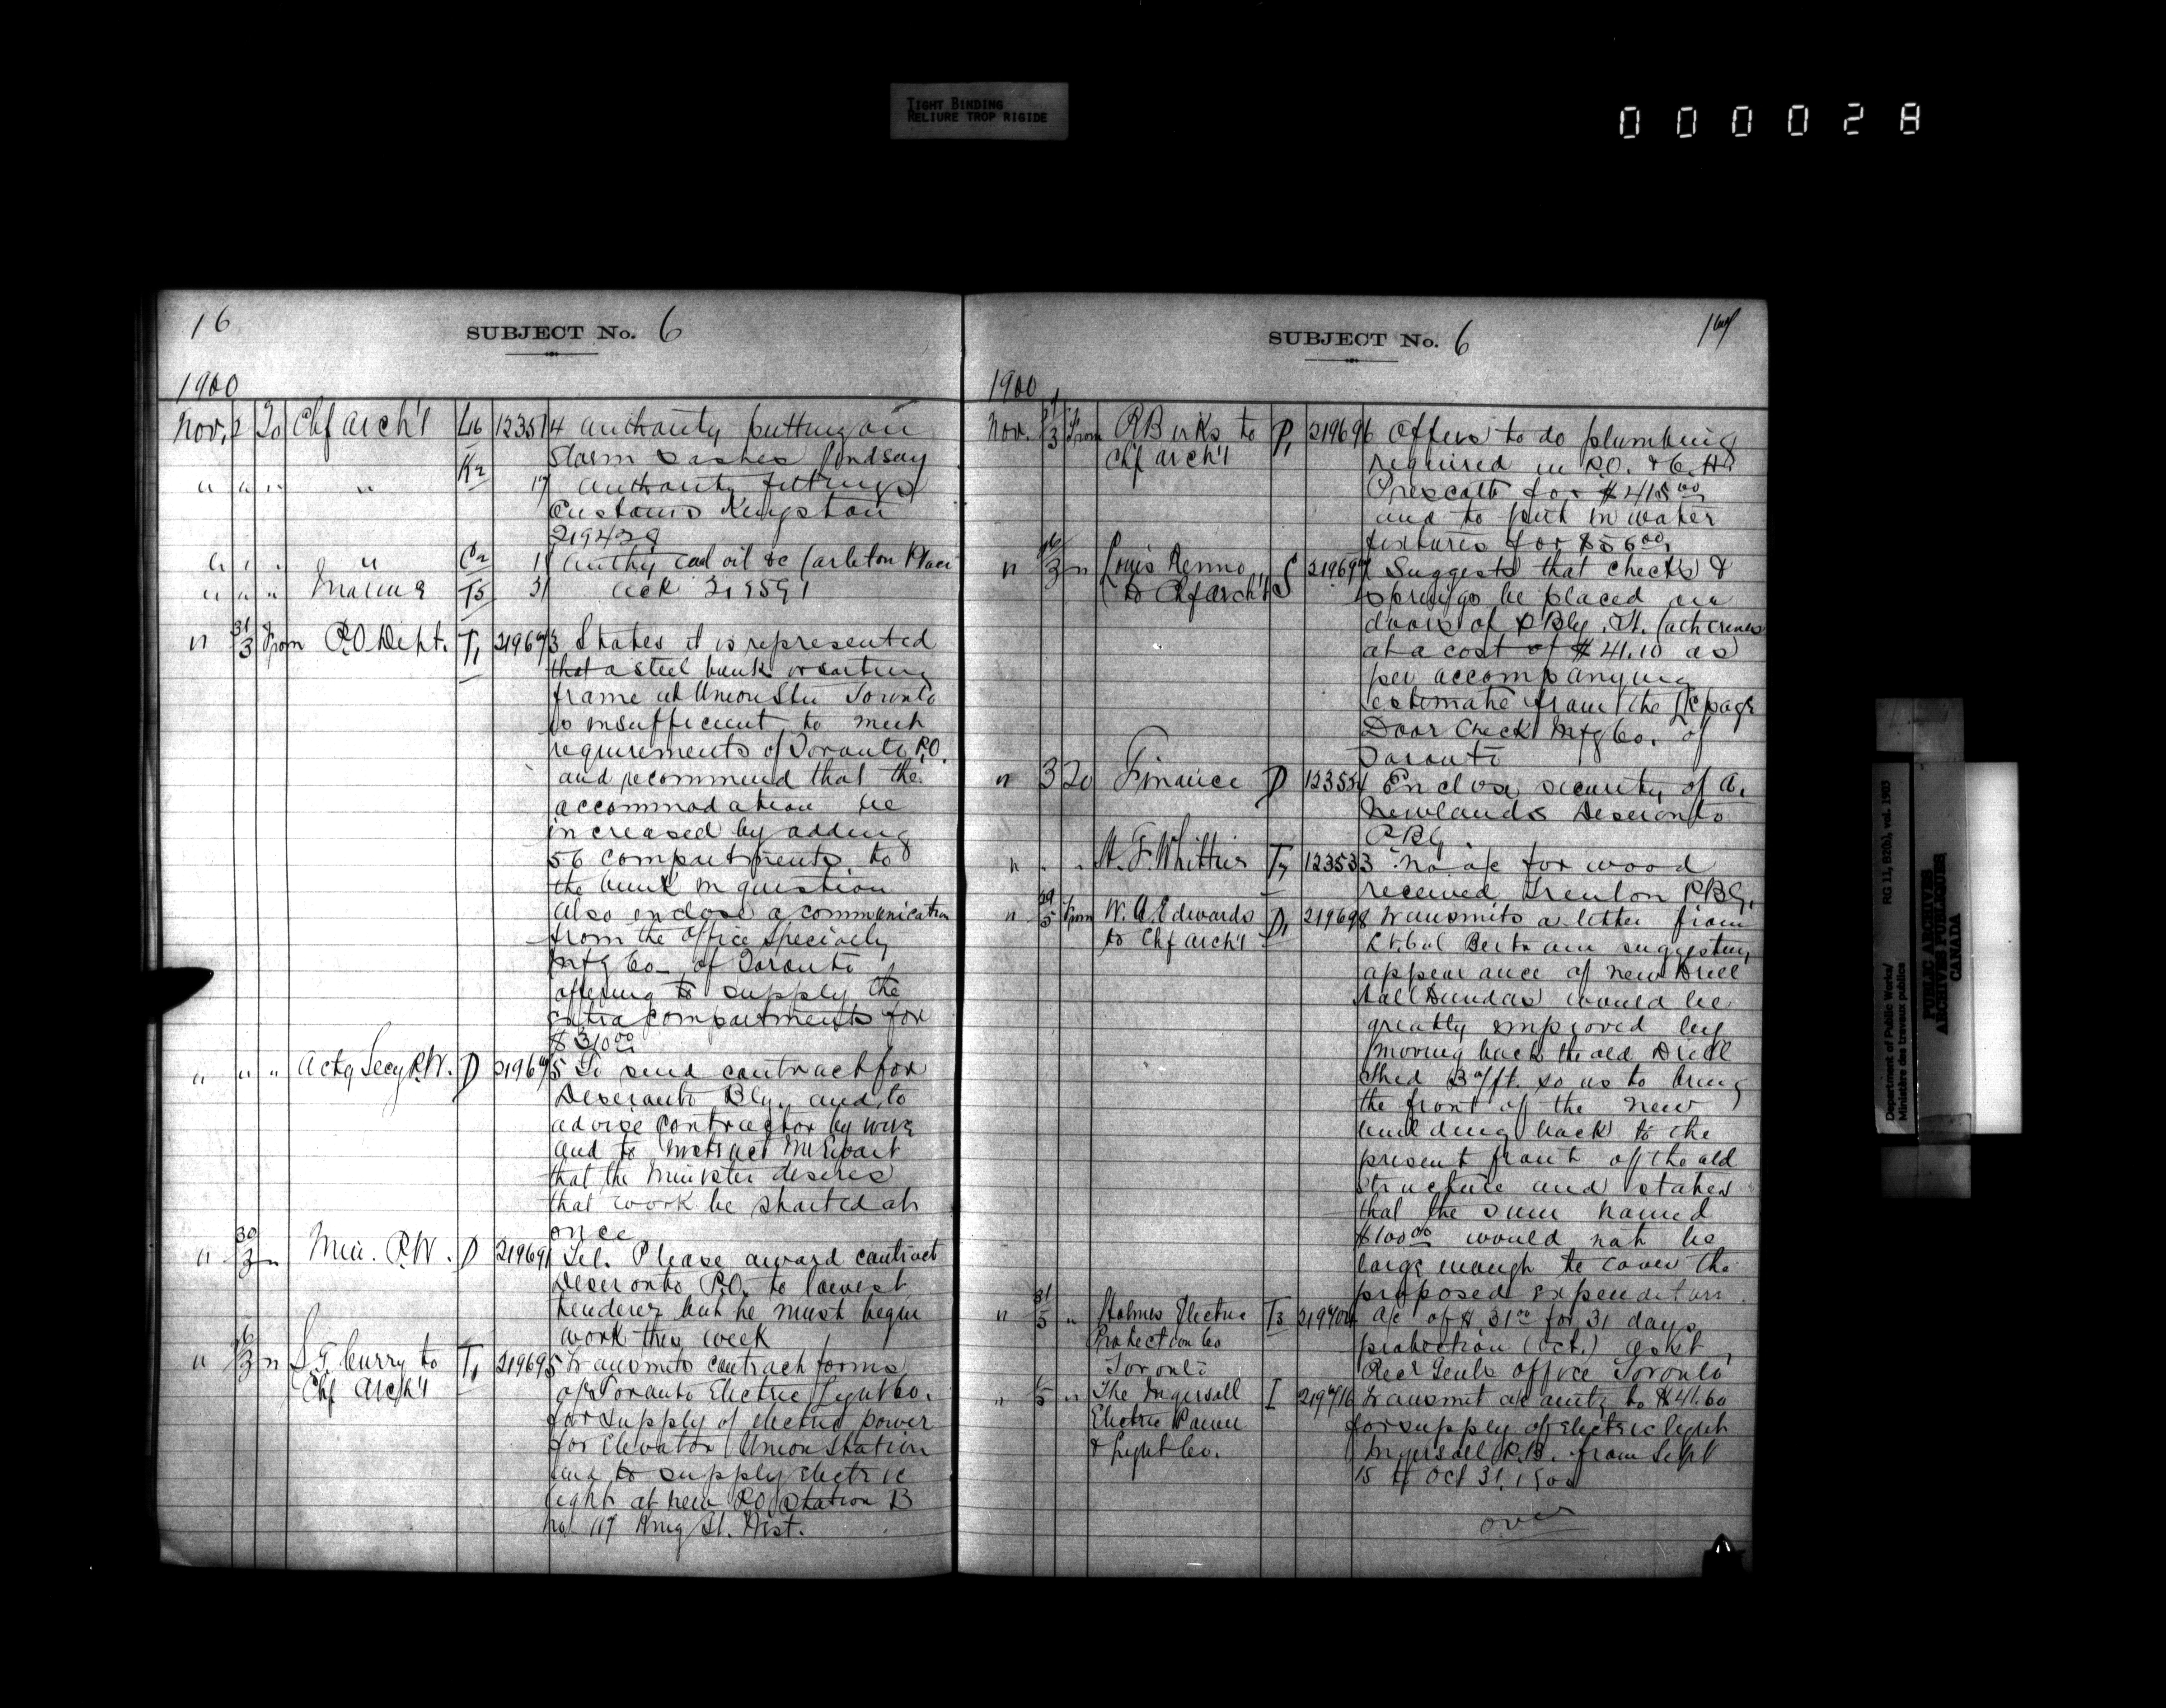 TIGHT BINDING
RELIURE TROP RIGIDE
000028
16
SUBJECT No. 6
1900
Nov. 2 To Chf Arch't L16 123514 Authority putting on
Storm Sashes Lindsay
" " " " K2 17 Authority fittings
Customs Kingston
219428
" " " " C2 1 Authy coal oil &c Carleton Place
" " " Marine T5 31 Ack 219591
" 31/3 From P.O. Dept. T1 219673 States it is represented
that a steel bunk or sorting
frame at Union Stn Toronto
is insufficient to meet
requirements of Toronto P.O.
and recommend that the
accommodation be
increased by adding
56 compartments to
the bunk in question
Also enclose a communication
from the Office Specialty
Mfg Co. of Toronto
offering to supply the
extra compartments for
$310.00
" " " Actg Secy P.W. D 219675 To send contract for
Deseronto Blg. and to
advise contractor by wire
and to instruct Mr Ewart
that the Minister desires
that work be started at
once
" 30/3 " Min. P.W. D 219691 Tel. Please award contract
Deseronto P.O. to lowest
tenderer but he must begin
work this week
" 26/3 " S.G. Curry to T1 219695 Transmits contract forms
Chf Arch't
of Toronto Electric Light Co.
for supply of electric power
for elevator Union Station
and to supply electric
light at new P.O. Station B
No 117 King St. West.
SUBJECT No. 6
17
1900
Nov. 31/3 From R Birks to P1 219696 Offers to do plumbing
Chf Arch't
required in P.O. & C.H.
Prescott for $415.00
and to put in water
fixtures for $56.00
" /3 " Louis Renno S 219697 Suggests that checks &
to Chf Arch't
springs be placed on
doors of P Blg. St. Catherines
at a cost of $41.10 as
per accompanying
estimate from the Lepage
Door Check Mfg Co. of
Toronto
" 3 To Finance D 123554 Enclose security of A.
Newlands Deseronto
P.Blg
" " " H. F. Whittier T7 123533 No a/c for wood
received Trenton P.BG.
" 29/5 From W. A. Edwards D1 219698 Transmits a letter from
to Chf Arch't
Lt. Col Bertram suggesting
appearance of new Drill
Hall Dundas would be
greatly improved by
moving back the old Drill
Shed 30 ft. so as to bring
the front of the new
building back to the
present front of the old
structure and states
that the sum named
$100.00 would not be
large enough to cover the
proposed expenditure.
" 31/5 " Holmes Electric T3 219704 a/c of $31.00 for 31 days
Protection Co
protection (Oct.) Asst
Toronto
Rec'r Genls office Toronto
" 1/5 " The Ingersoll I 219716 Transmit a/c amtg to $41.60
Electric Power
for supply of electric light
& Light Co.
Ingersoll P.B. from Sept
15 to Oct 31, 1900
over
Department of Public Works/
Ministère des travaux publics
RG 11, B2(b), vol. 1903
PUBLIC ARCHIVES
ARCHIVES PUBLIQUES
CANADA